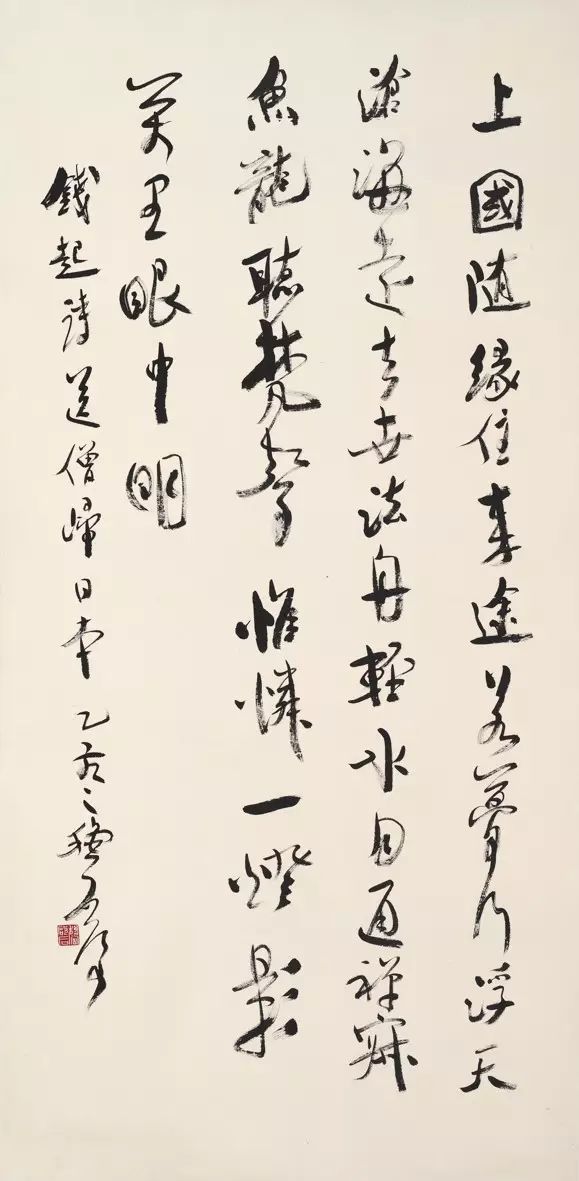 上國随緣住来途若夢行浮天
滄海遠去世法舟輕水月通禪寂
魚龍聽梵聲惟憐一燈影
萬里眼中明
錢起詩送僧歸日本 乙亥